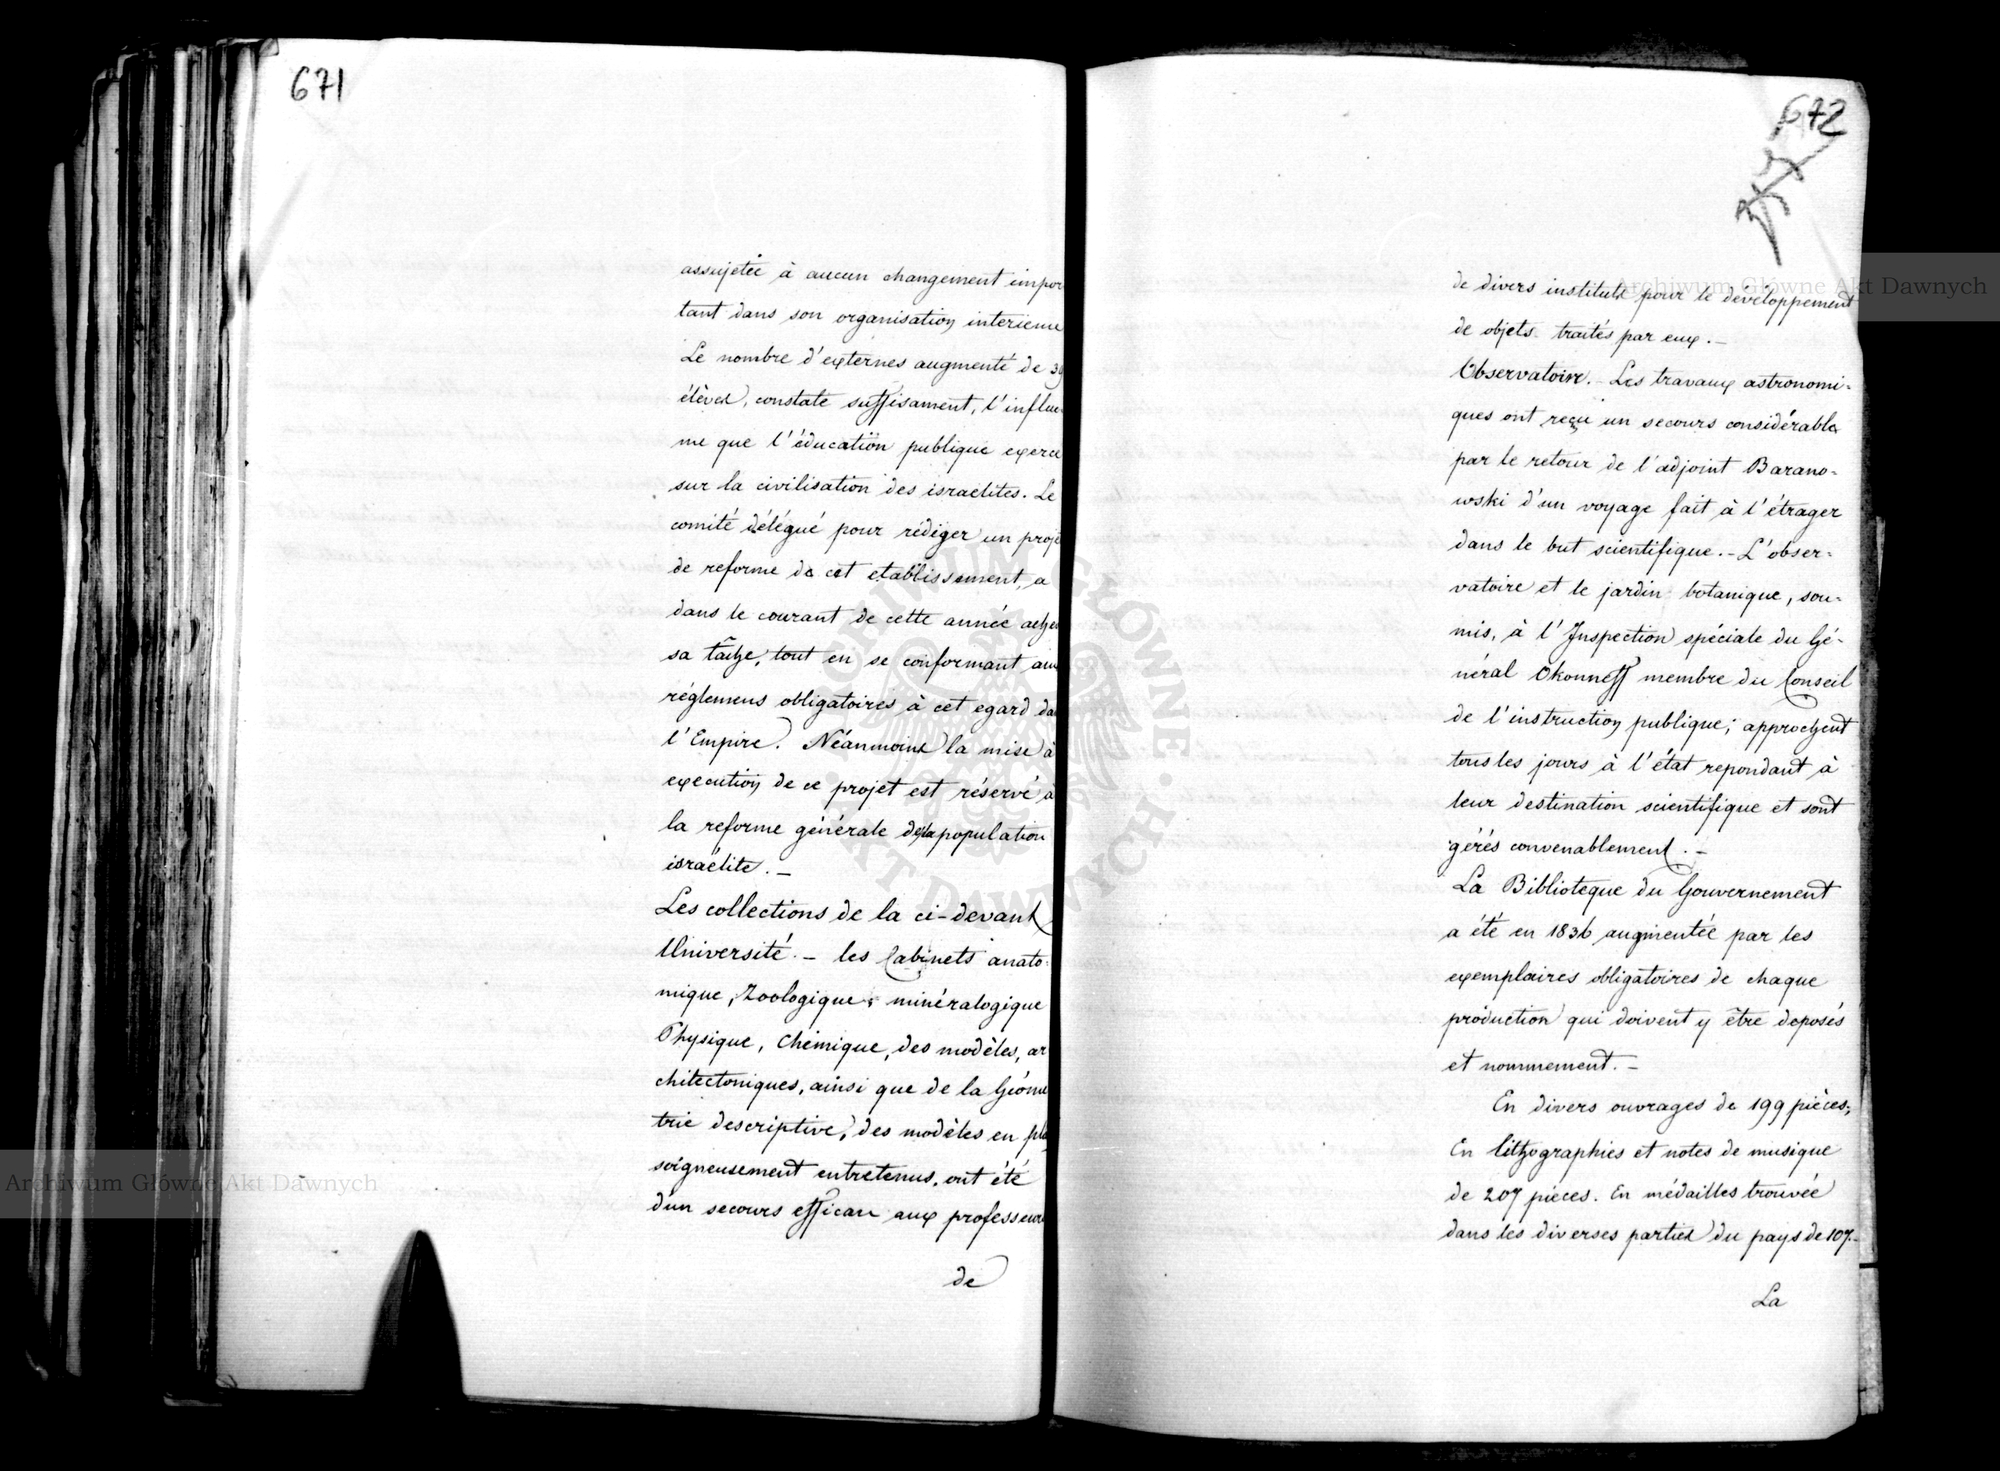 671
assujetée à aucun changement impor
tant dans son organisation interieure
Le nombre d'externes augmenté de 39
élèves, constate suffisament, l'influe
me que l'éducation publique exerce
sur la civilisation des israélites. Le
comité délégué pour rédiger un proje
de reforme de cet etablissement, a
dans le courant de cette année achev
sa tâche, tout en se conformant aux
réglemens obligatoires à cet egard da
l'Empire. Néanmoins la mise à
execution de ce projet est réservé à
la reforme générale de la population
israélite. –
Les collections de la ci-devant
Université. – les Cabinets anato-
mique, Zoologique, minéralogique
Physique, Chémique, des modèles, ar
chitectoniques, ainsi que de la Géomé
trie descriptive, des modèles en pla
soigneusement entretenus, ont été
d'un secours efficace aux professeurs
de
672
de divers instituts pour le développement
de objets traités par eux. –
Observatoire. – Les travaux astronomi-
ques ont reçu un secours considérable
par le retour de l'adjoint Barano-
wski d'un voyage fait à l'étrager
dans le but scientifique. – L'obser-
vatoire et le jardin botanique, sou-
mis, à l'Inspection spéciale du Gé-
néral Okouneff membre du Conseil
de l'instruction publique; approchent
tous les jours à l'état repondant à
leur destination scientifique et sont
gérés convenablement. –
La Biblioteque du Gouvernement
a été en 1836 augmentée par les
exemplaires obligatoires de chaque
production qui doivent y être deposés
et nommement. –
En divers ouvrages de 199 pièces,
En lithographies et notes de musique
de 207 pieces. En médailles trouvée
dans les diverses parties du pays de 107. –
La
Archiwum Główne Akt Dawnych
Archiwum Główne Akt Dawnych
ARCHIWUM GŁÓWNE · AKT DAWNYCH ·